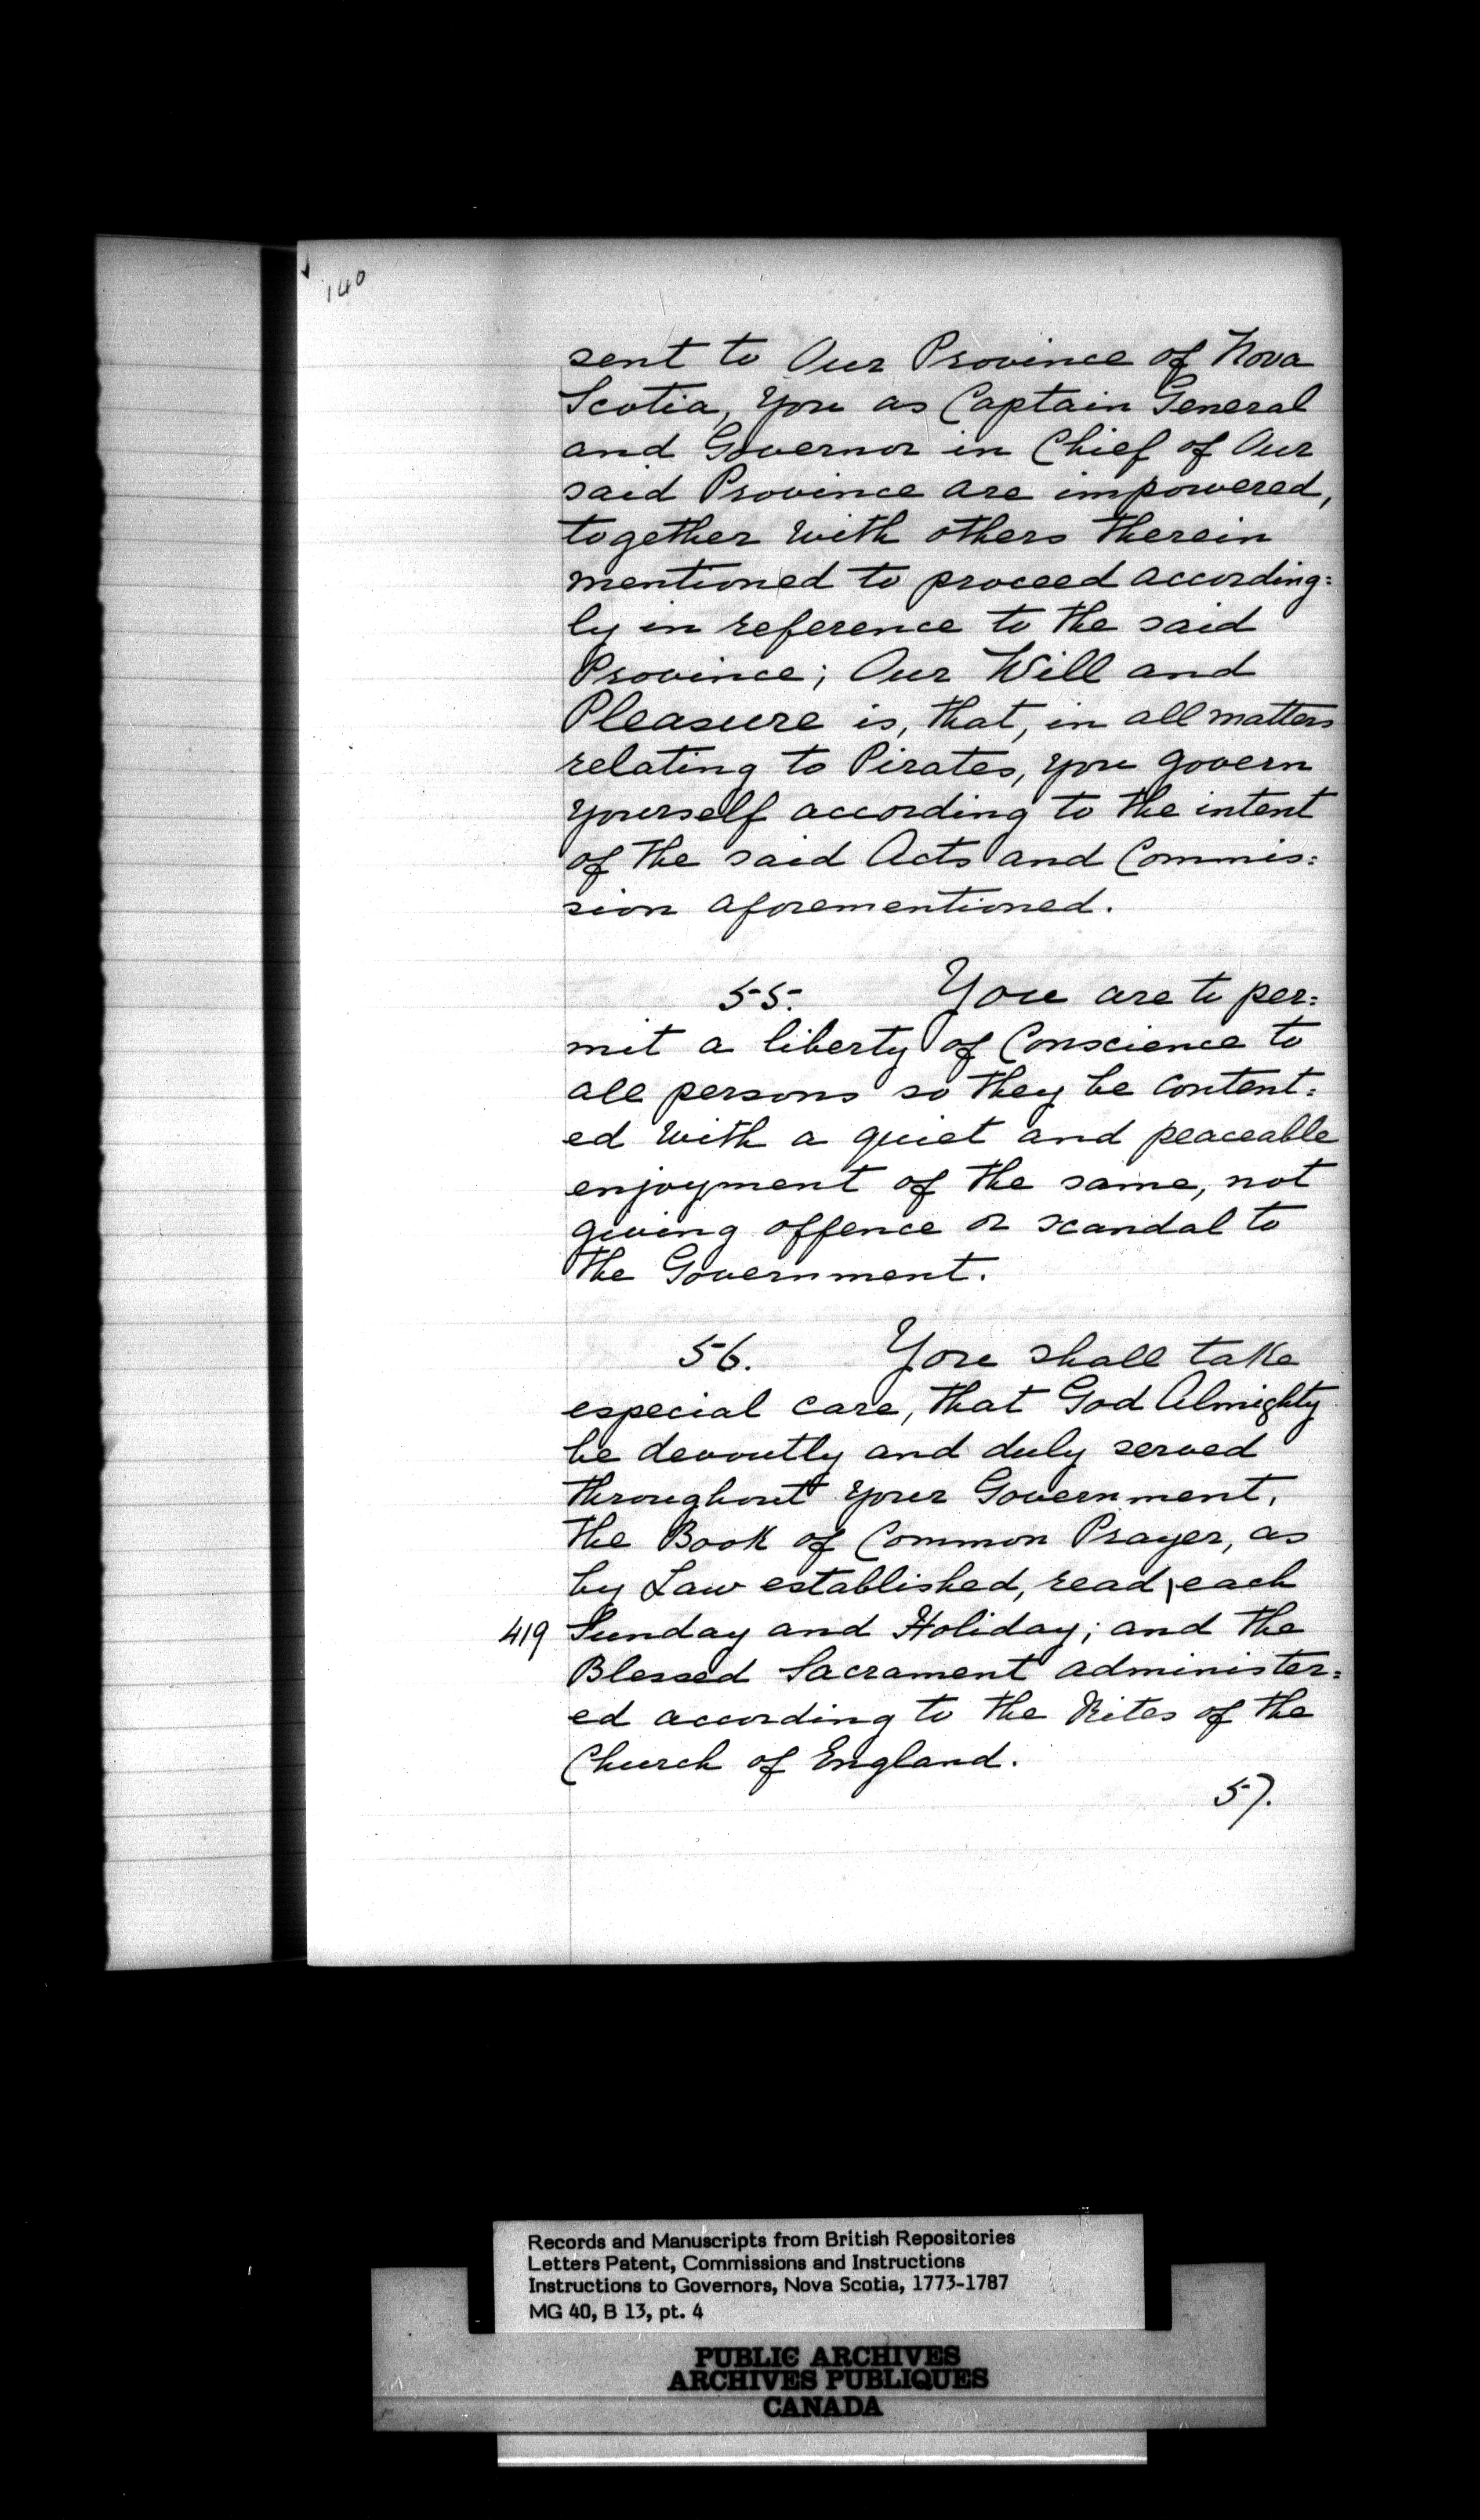 140
sent to Our Province of Nova
Scotia, you as Captain General
and Governor in Chief of Our
said Province are impowered,
together with others therein
mentioned to proceed according=
ly in reference to the said
Province; Our Will and
Pleasure is, that, in all matters
relating to Pirates, you govern
yourself according to the intent
of the said Acts and Commis=
sion aforementioned.
55. You are to per=
mit a liberty of Conscience to
all persons so they be content=
ed with a quiet and peaceable
enjoyment of the same, not
giving offence or scandal to
the Government.
56. You shall take
especial care, that God Almighty
be devoutly and duly served
throughout your Government,
the Book of Common Prayer, as
by Law established, read, each
419 Sunday and Holiday; and the
Blessed Sacrament administer=
ed according to the Rites of the
Church of England.
57.
Records and Manuscripts from British Repositories
Letters Patent, Commissions and Instructions
Instructions to Governors, Nova Scotia, 1773-1787
MG 40, B 13, pt. 4
PUBLIC ARCHIVES
ARCHIVES PUBLIQUES
CANADA